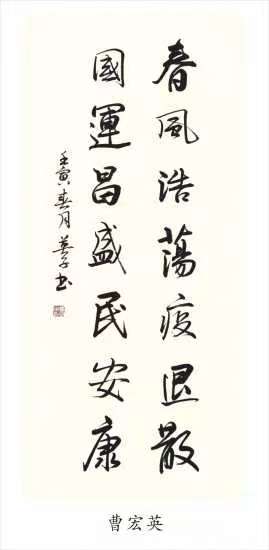 春風浩蕩疫退散
國運昌盛民安康
壬寅春月英子书
曹宏英